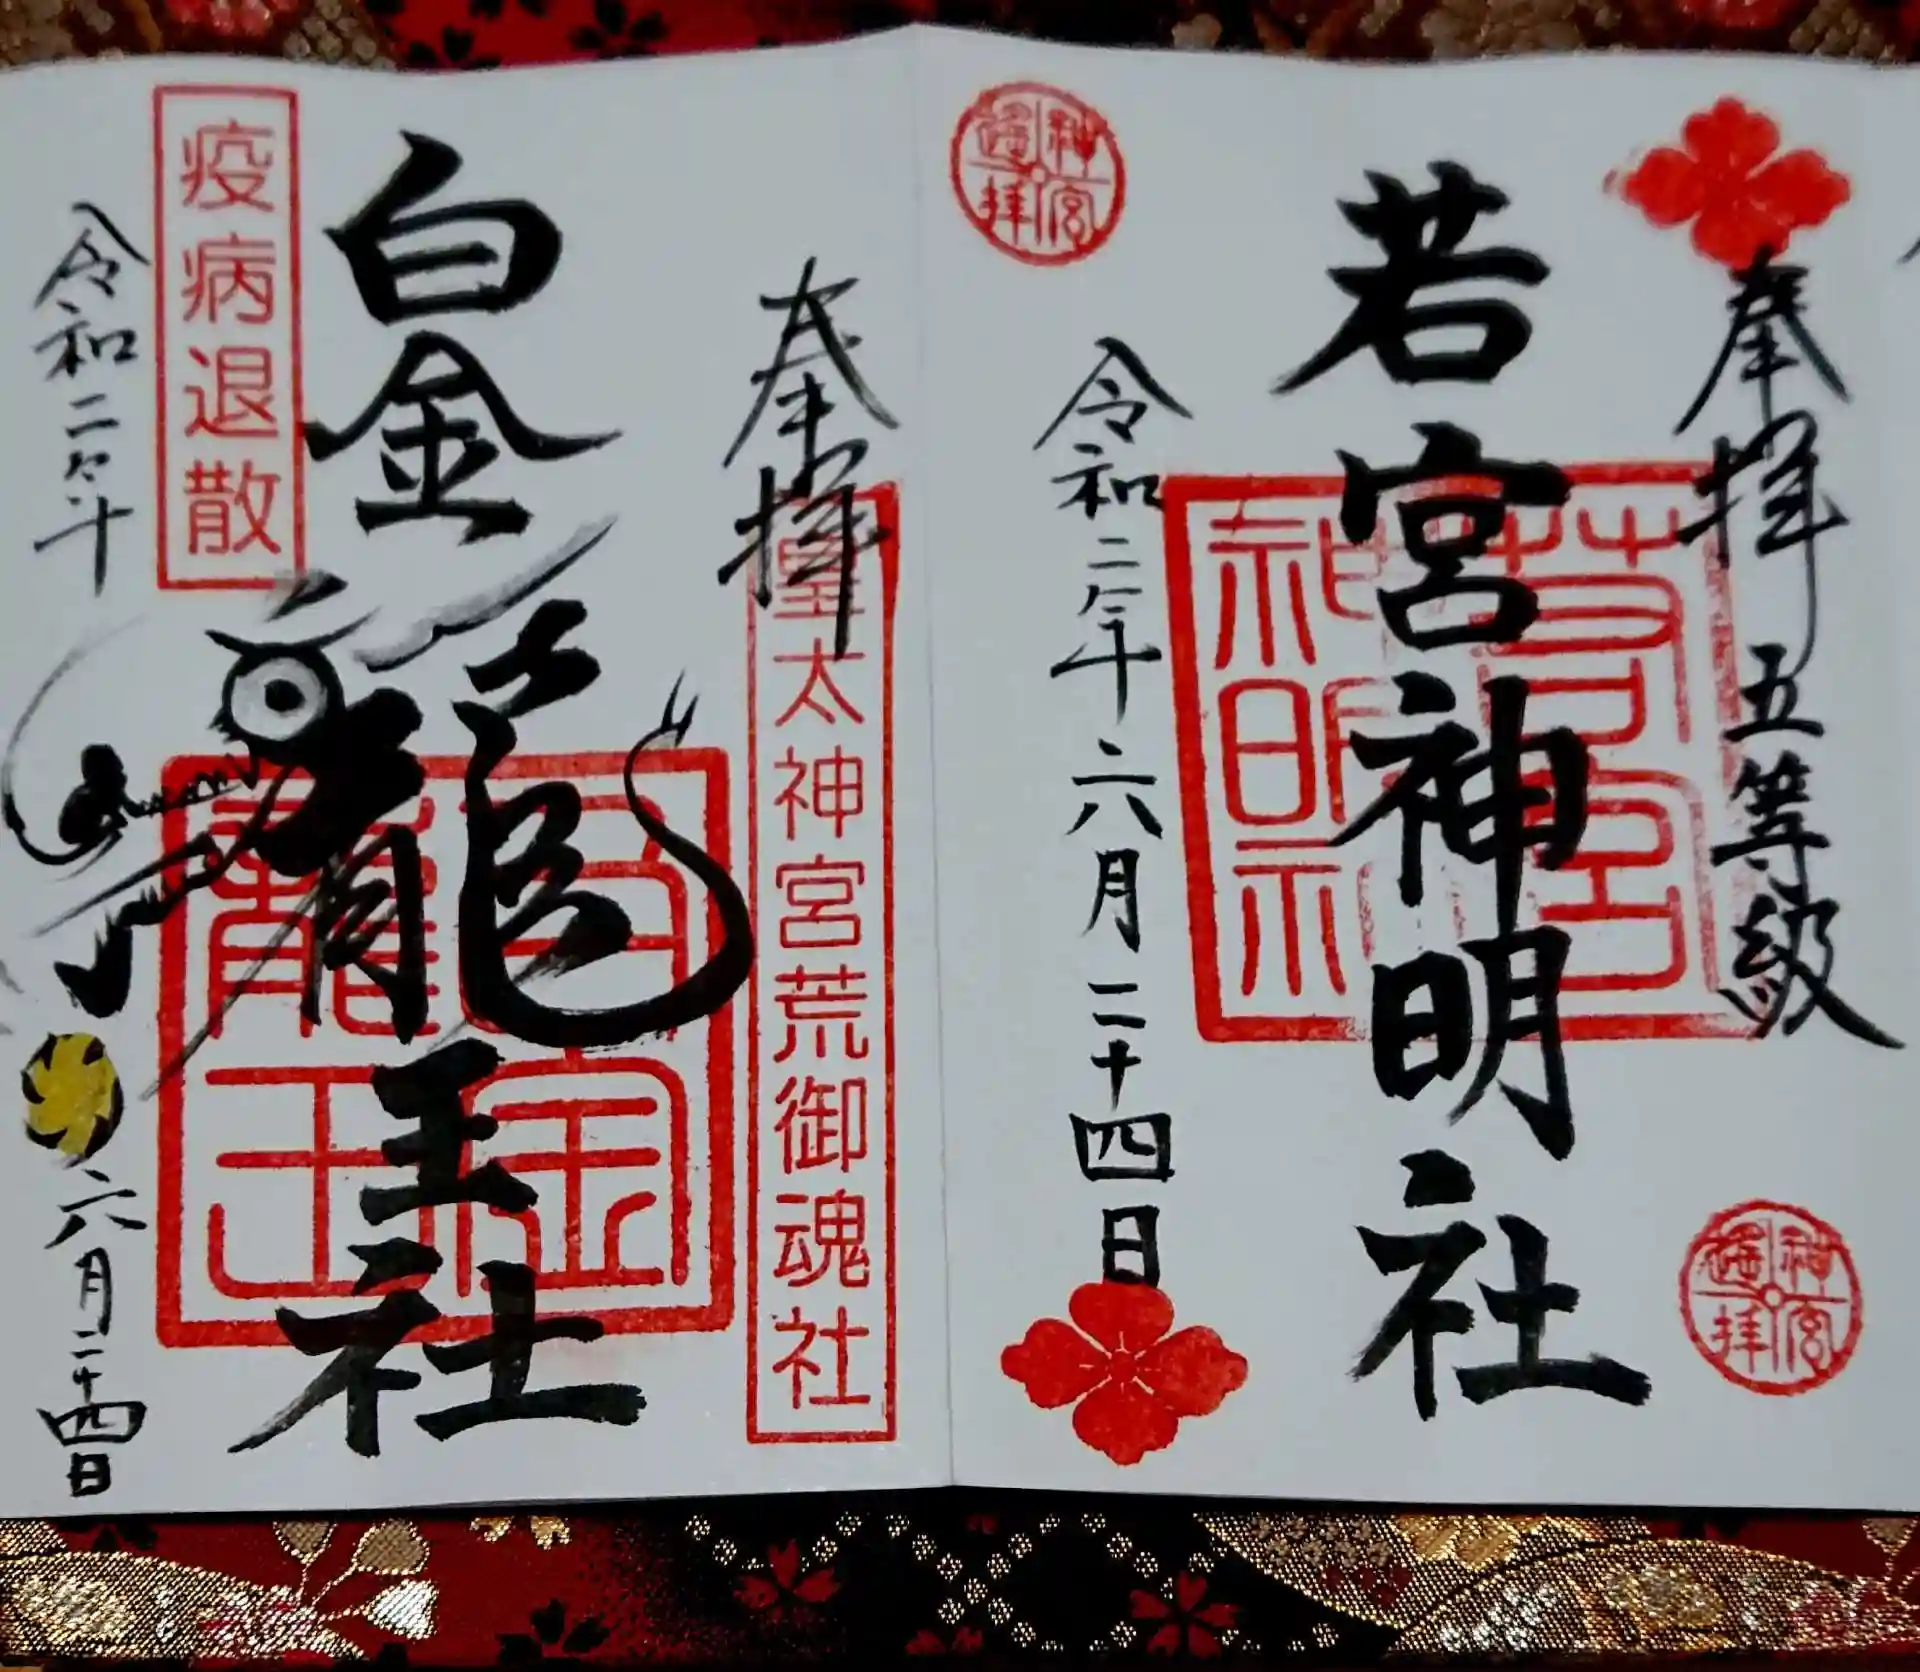 奉拝 五等級
若宮神明社
令和二年六月二十四日
神宮遥拝
神宮遥拝
若宮神明社
奉拝
皇太神宮荒御魂社
白金龍王社
白金龍王
疫病退散
令和二年
六月二十四日